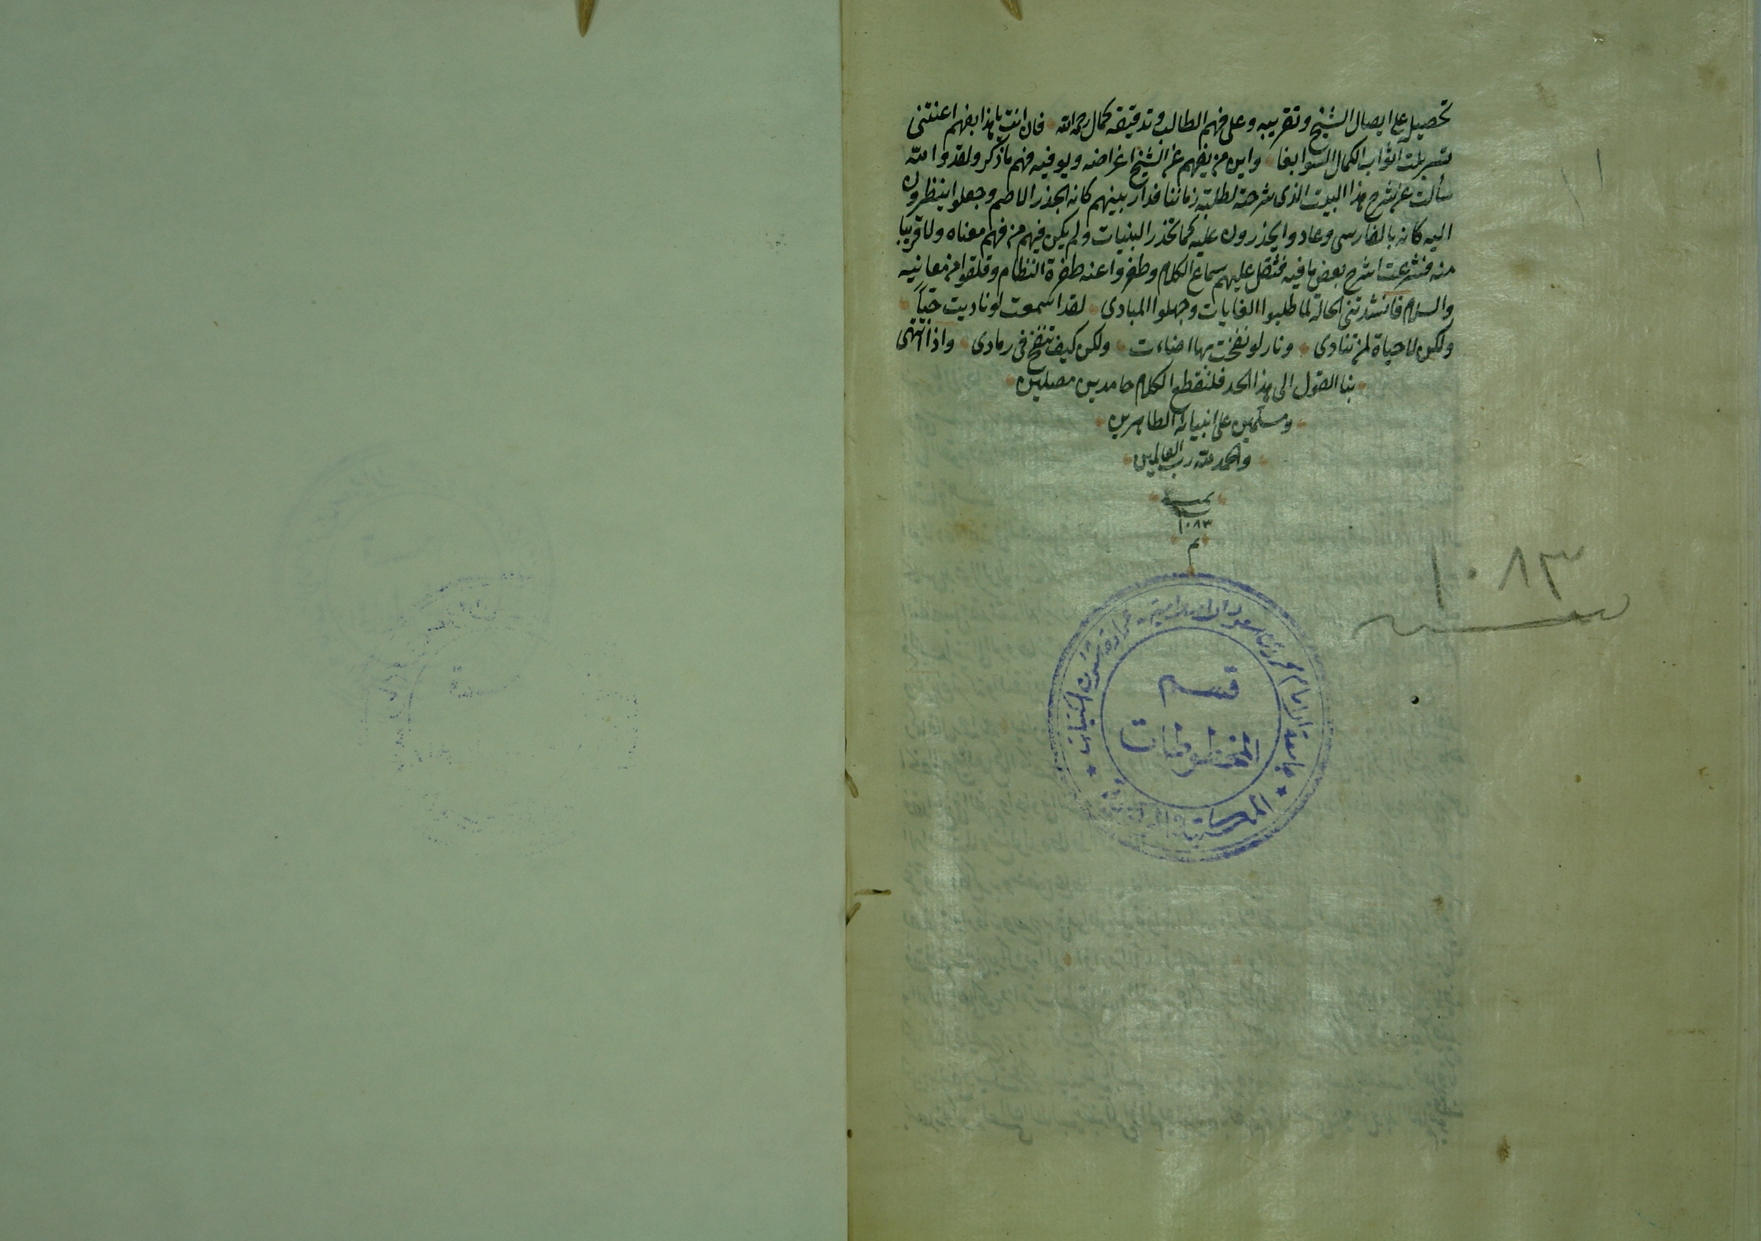 تحصيل على ايصال الشيخ وتقريبه وعلى فهم الطالب وتدقيقه كمال رحمه الله فان انت يا هذا بفهم اعنتنى
تسربلت اثواب الكمال السوابغا واين من يفهم عن الشيخ اغراضه ويوفيه فهم ما ذكر ولقد والله
سألت عن شرح هذا البيت الذى شرحته لطلبة زماننا فدار بينهم كانه الجذر الاصم وجعلوا ينظرون
اليه كانه بالفارسى وعادوا يحذرون عليه كما تحذر البنيات ولم يكن فيهم من فهم معناه ولا قريبا
منه فشرعت اشرح بعض ما فيه فثقل عليهم سماع الكلام وطفروا عنه طفرة النظام وقلقوا من معانيه
والسلام فانشدتنى الحالة لما طلبوا الغايات وجهلوا المبادى لقد اسمعت لو ناديت حيا
ولكن لا حياة لمن تنادى ونار لو نفخت بها اضاءت ولكن كيف تنفخ فى رمادى واذا انتهى
بنا القول الى هذا الحد فلنقطع الكلام حامدين مصلين
ومسلمين على انبيائه الطاهرين
والحمد لله رب العالمين
سنة
١٠٨٣
م
١٠٨٣
سنة
قسم
المخطوطات
جامعة الامام محمد بن سعود الاسلامية عمادة شئون المكتبات
المكتبة المركزية